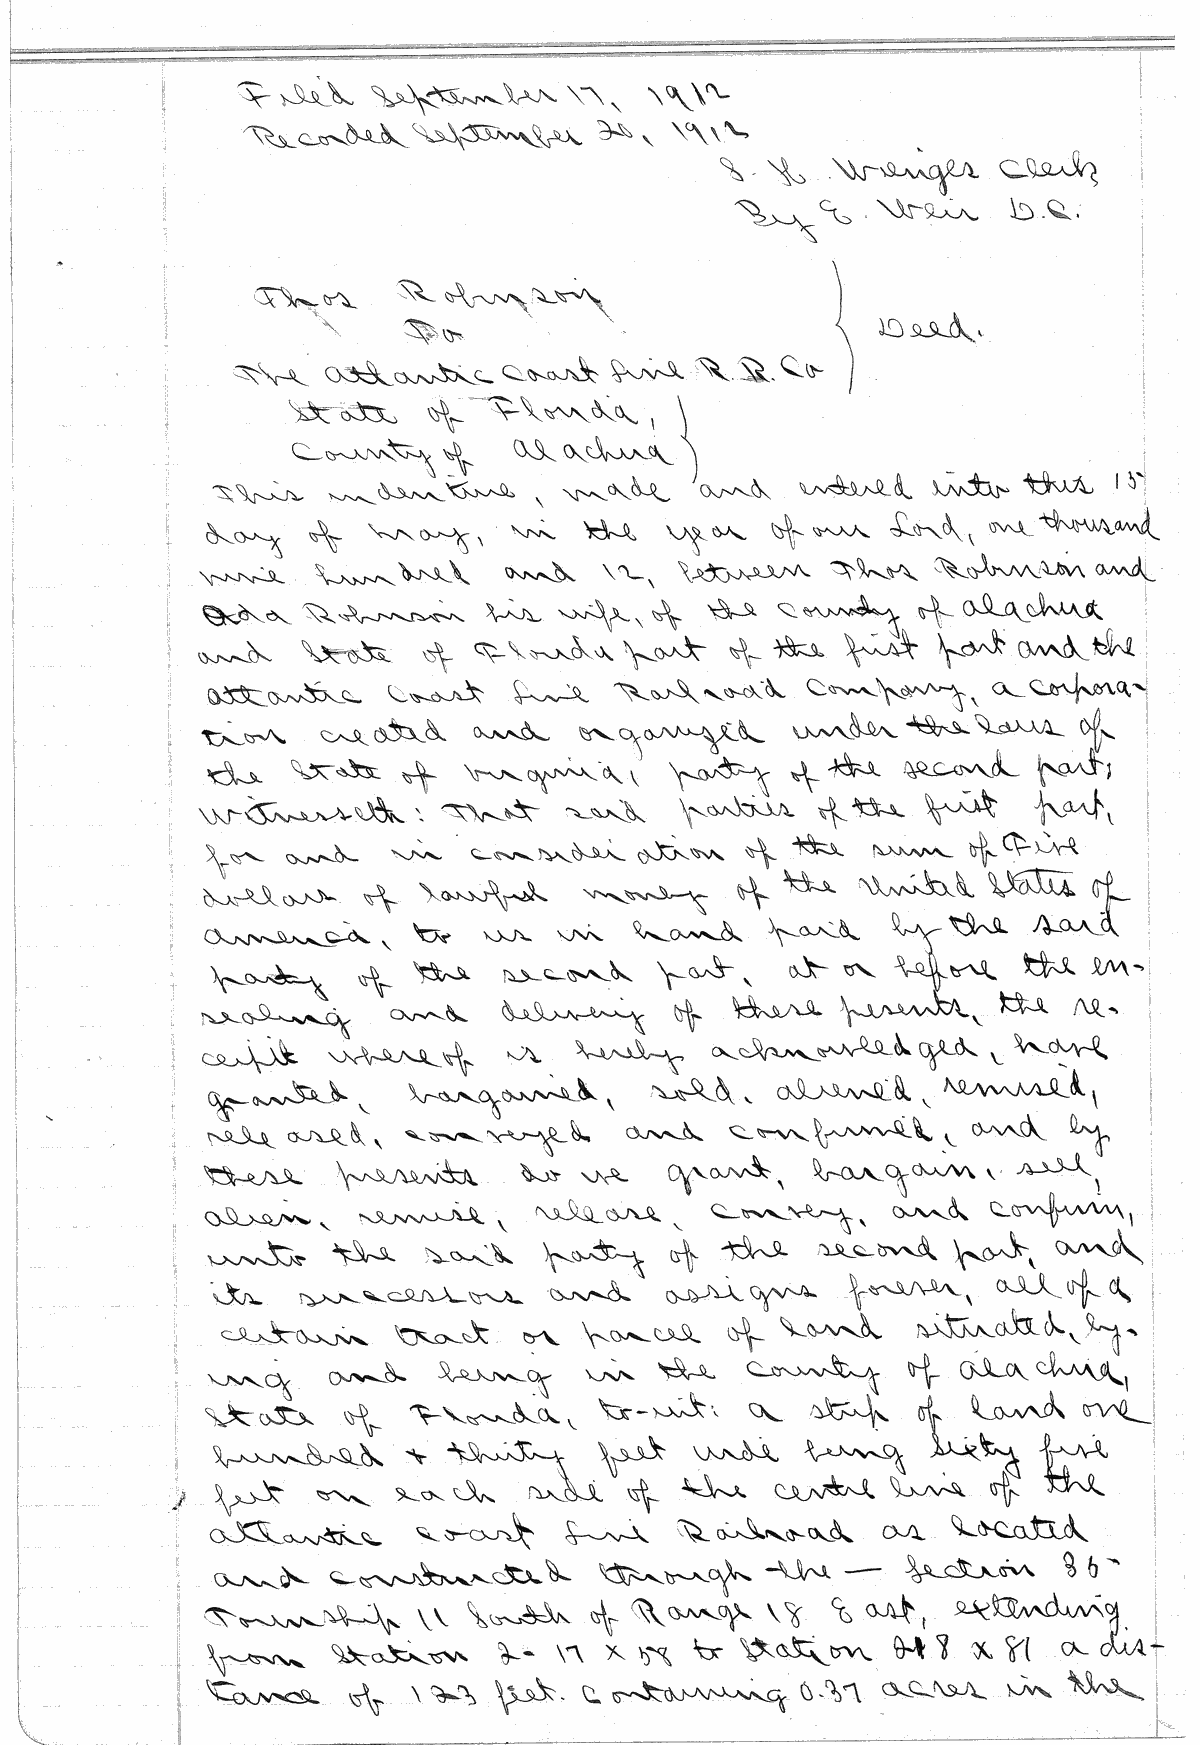 Filed September 17, 1912
Recorded September 20, 1912
S. H. Wienges Clerk
By E. Weir D.C.
Thos Robinson
To
Deed.
The Atlantic Coast Line R.R. Co
State of Florida,
County of Alachua
This indenture, made and entered into this 15
day of May, in the year of our Lord, one thousand
nine hundred and 12, between Thos Robinson and
Ada Robinson his wife, of the County of Alachua
and State of Florida part of the first part and the
Atlantic Coast Line Railroad Company, a corpora-
tion created and organized under the laws of
the State of Virginia, party of the second part;
Witnesseth: That said parties of the first part,
for and in consideration of the sum of Five
dollars of lawful money of the United States of
America, to us in hand paid by the said
party of the second part, at or before the en-
sealing and delivery of these presents, the re-
ceipt whereof is hereby acknowledged, have
granted, bargained, sold, aliened, remised,
released, conveyed and confirmed, and by
these presents do we grant, bargain, sell,
alien, remise, release, convey, and confirm,
unto the said party of the second part, and
its successors and assigns forever, all of a
certain tract or parcel of land situated, ly-
ing and being in the County of Alachua,
State of Florida, to-wit: A strip of land one
hundred & thirty feet wide being sixty five
feet on each side of the centre line of the
Atlantic Coast Line Railroad as located
and constructed through the — Section 35
Township 11 South of Range 18 East, extending
from Station 2-17 x 58 to Station 218 x 81 a dis-
tance of 123 feet. Containing 0.37 acres in the